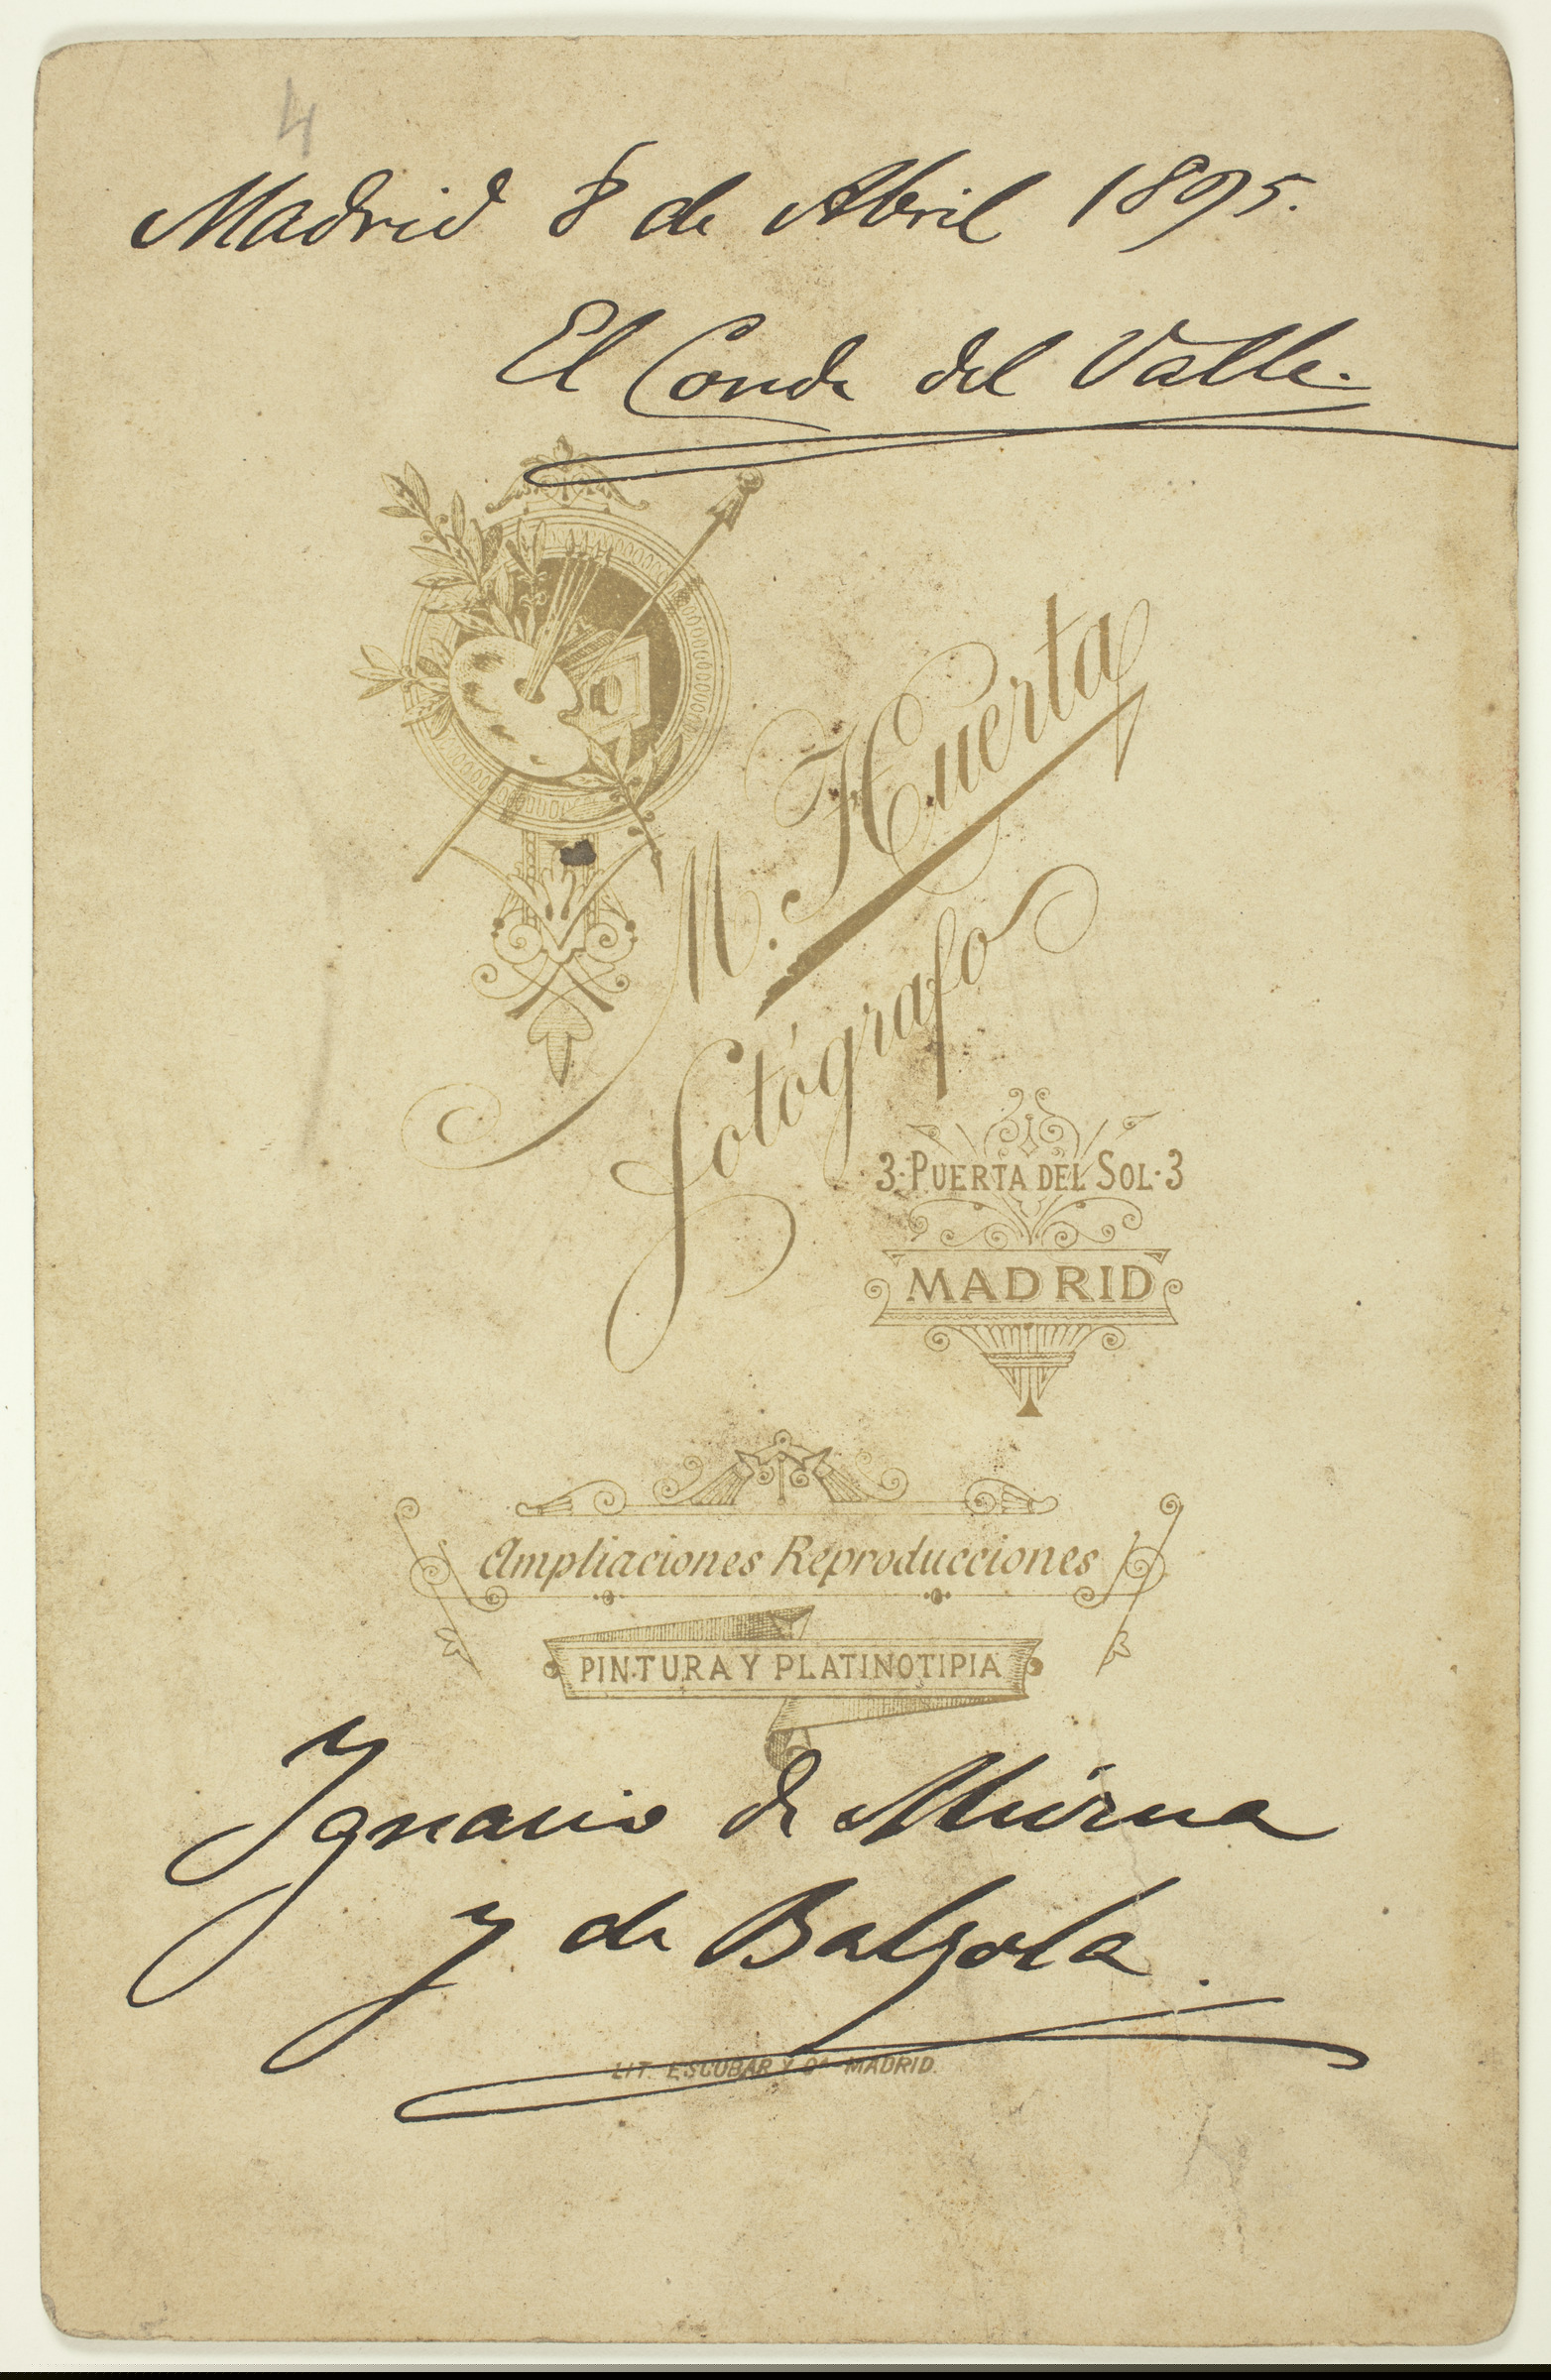 4
Madrid 8 de Abril 1895.
El Conde del Valle.
M. Huerta
Fotógrafo
3·PUERTA DEL SOL·3
MADRID
Ampliaciones Reproducciones
PINTURA Y PLATINOTIPIA
Ygnacio de Murua
y de Balzola.
LIT. ESCOBAR Y Cª MADRID.